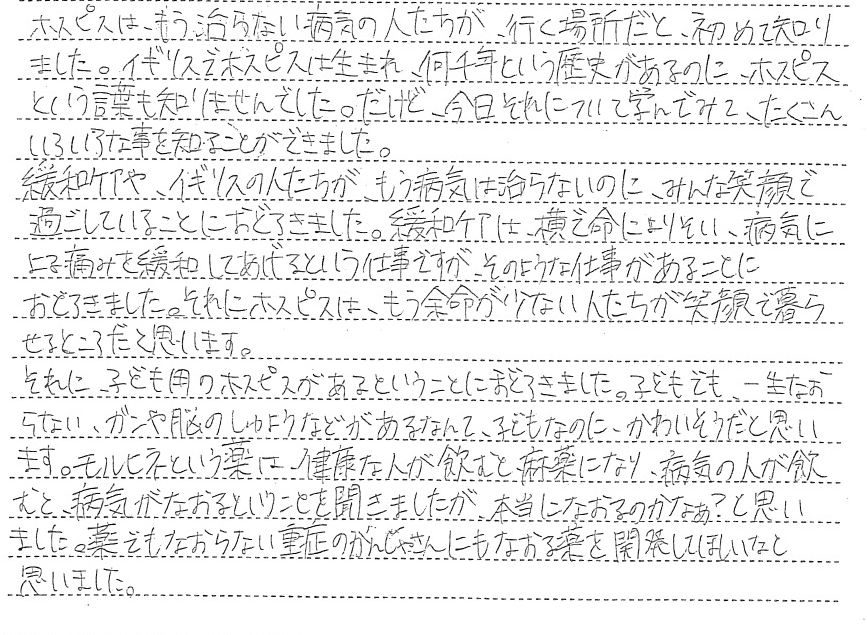 ホスピスは、もう治らない病気の人たちが、行く場所だと、初めて知り
ました。イギリスでホスピスは生まれ、何千年という歴史があるのに、ホスピス
という言葉も知りませんでした。だけど、今日それについて学んでみて、たくさん
いろいろな事を知ることができました。
緩和ケアや、イギリスの人たちが、もう病気は治らないのに、みんな笑顔で
過ごしていることにおどろきました。緩和ケアは、横で命によりそい、病気に
よる痛みを緩和してあげるという仕事ですが、そのような仕事があることに
おどろきました。それにホスピスは、もう余命が少ない人たちが笑顔で暮ら
せるところだと思います。
それに、子ども用のホスピスがあるということにおどろきました。子どもでも、一生なお
らない、ガンや脳のしゅようなどがあるなんて、子どもなのに、かわいそうだと思い
ます。モルヒネという薬は、健康な人が飲むと麻薬になり、病気の人が飲
むと、病気がなおるということを聞きましたが、本当になおるのかなぁ?と思い
ました。薬でもなおらない重症のがんじゃさんにもなおる薬を開発してほしいなと
思いました。